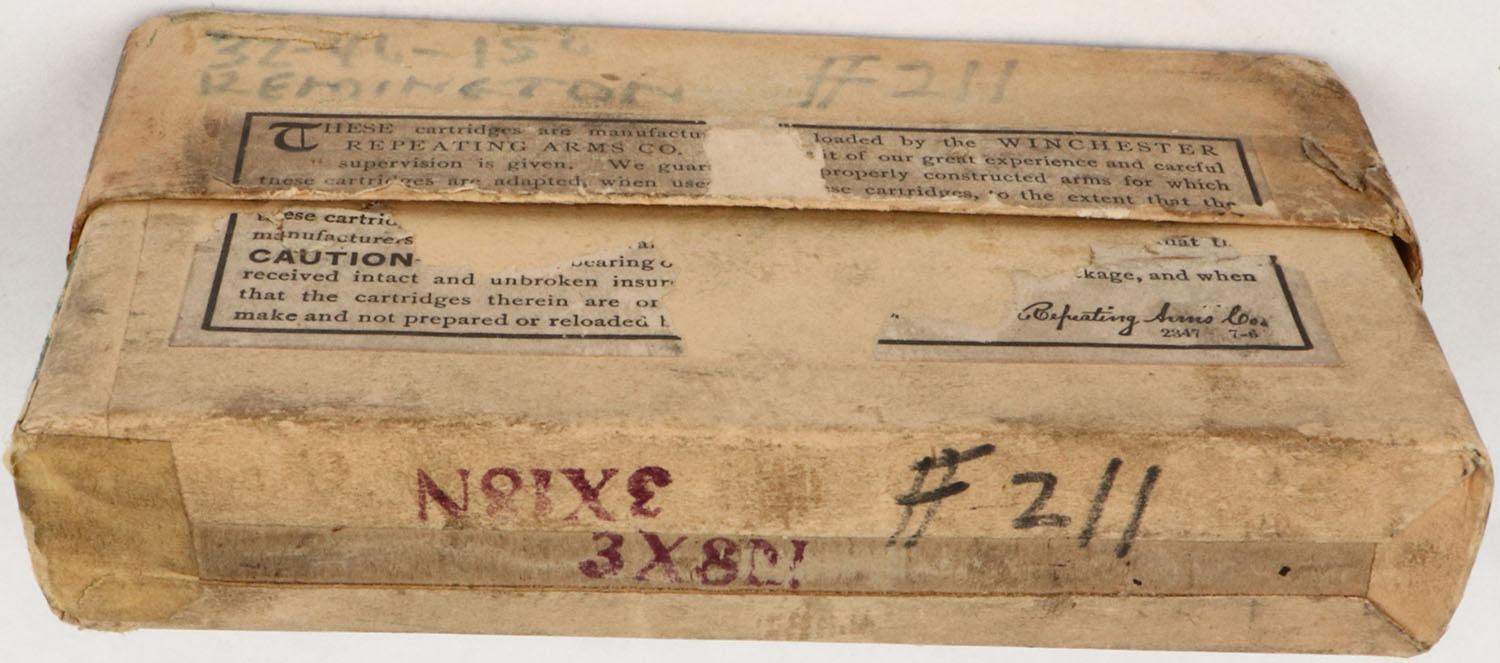 32-44-150
REMINGTON #211
THESE cartridges are manufactu loaded by the WINCHESTER
REPEATING ARMS CO. it of our great experience and careful
supervision is given. We guar properly constructed arms for which
these cartridges are adapted, when use se cartridges, to the extent that the
these cartri
manufacturers that
CAUTION bearing
received intact and unbroken insur ckage, and when
that the cartridges therein are or
make and not prepared or reloaded Repeating Arms Co.
2347 7-8
3X18N
#211
3X8